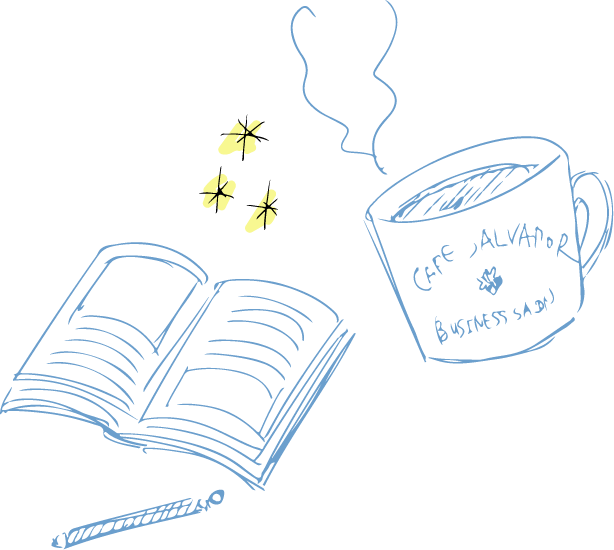 CAFE SALVADOR
BUSINESS SALON